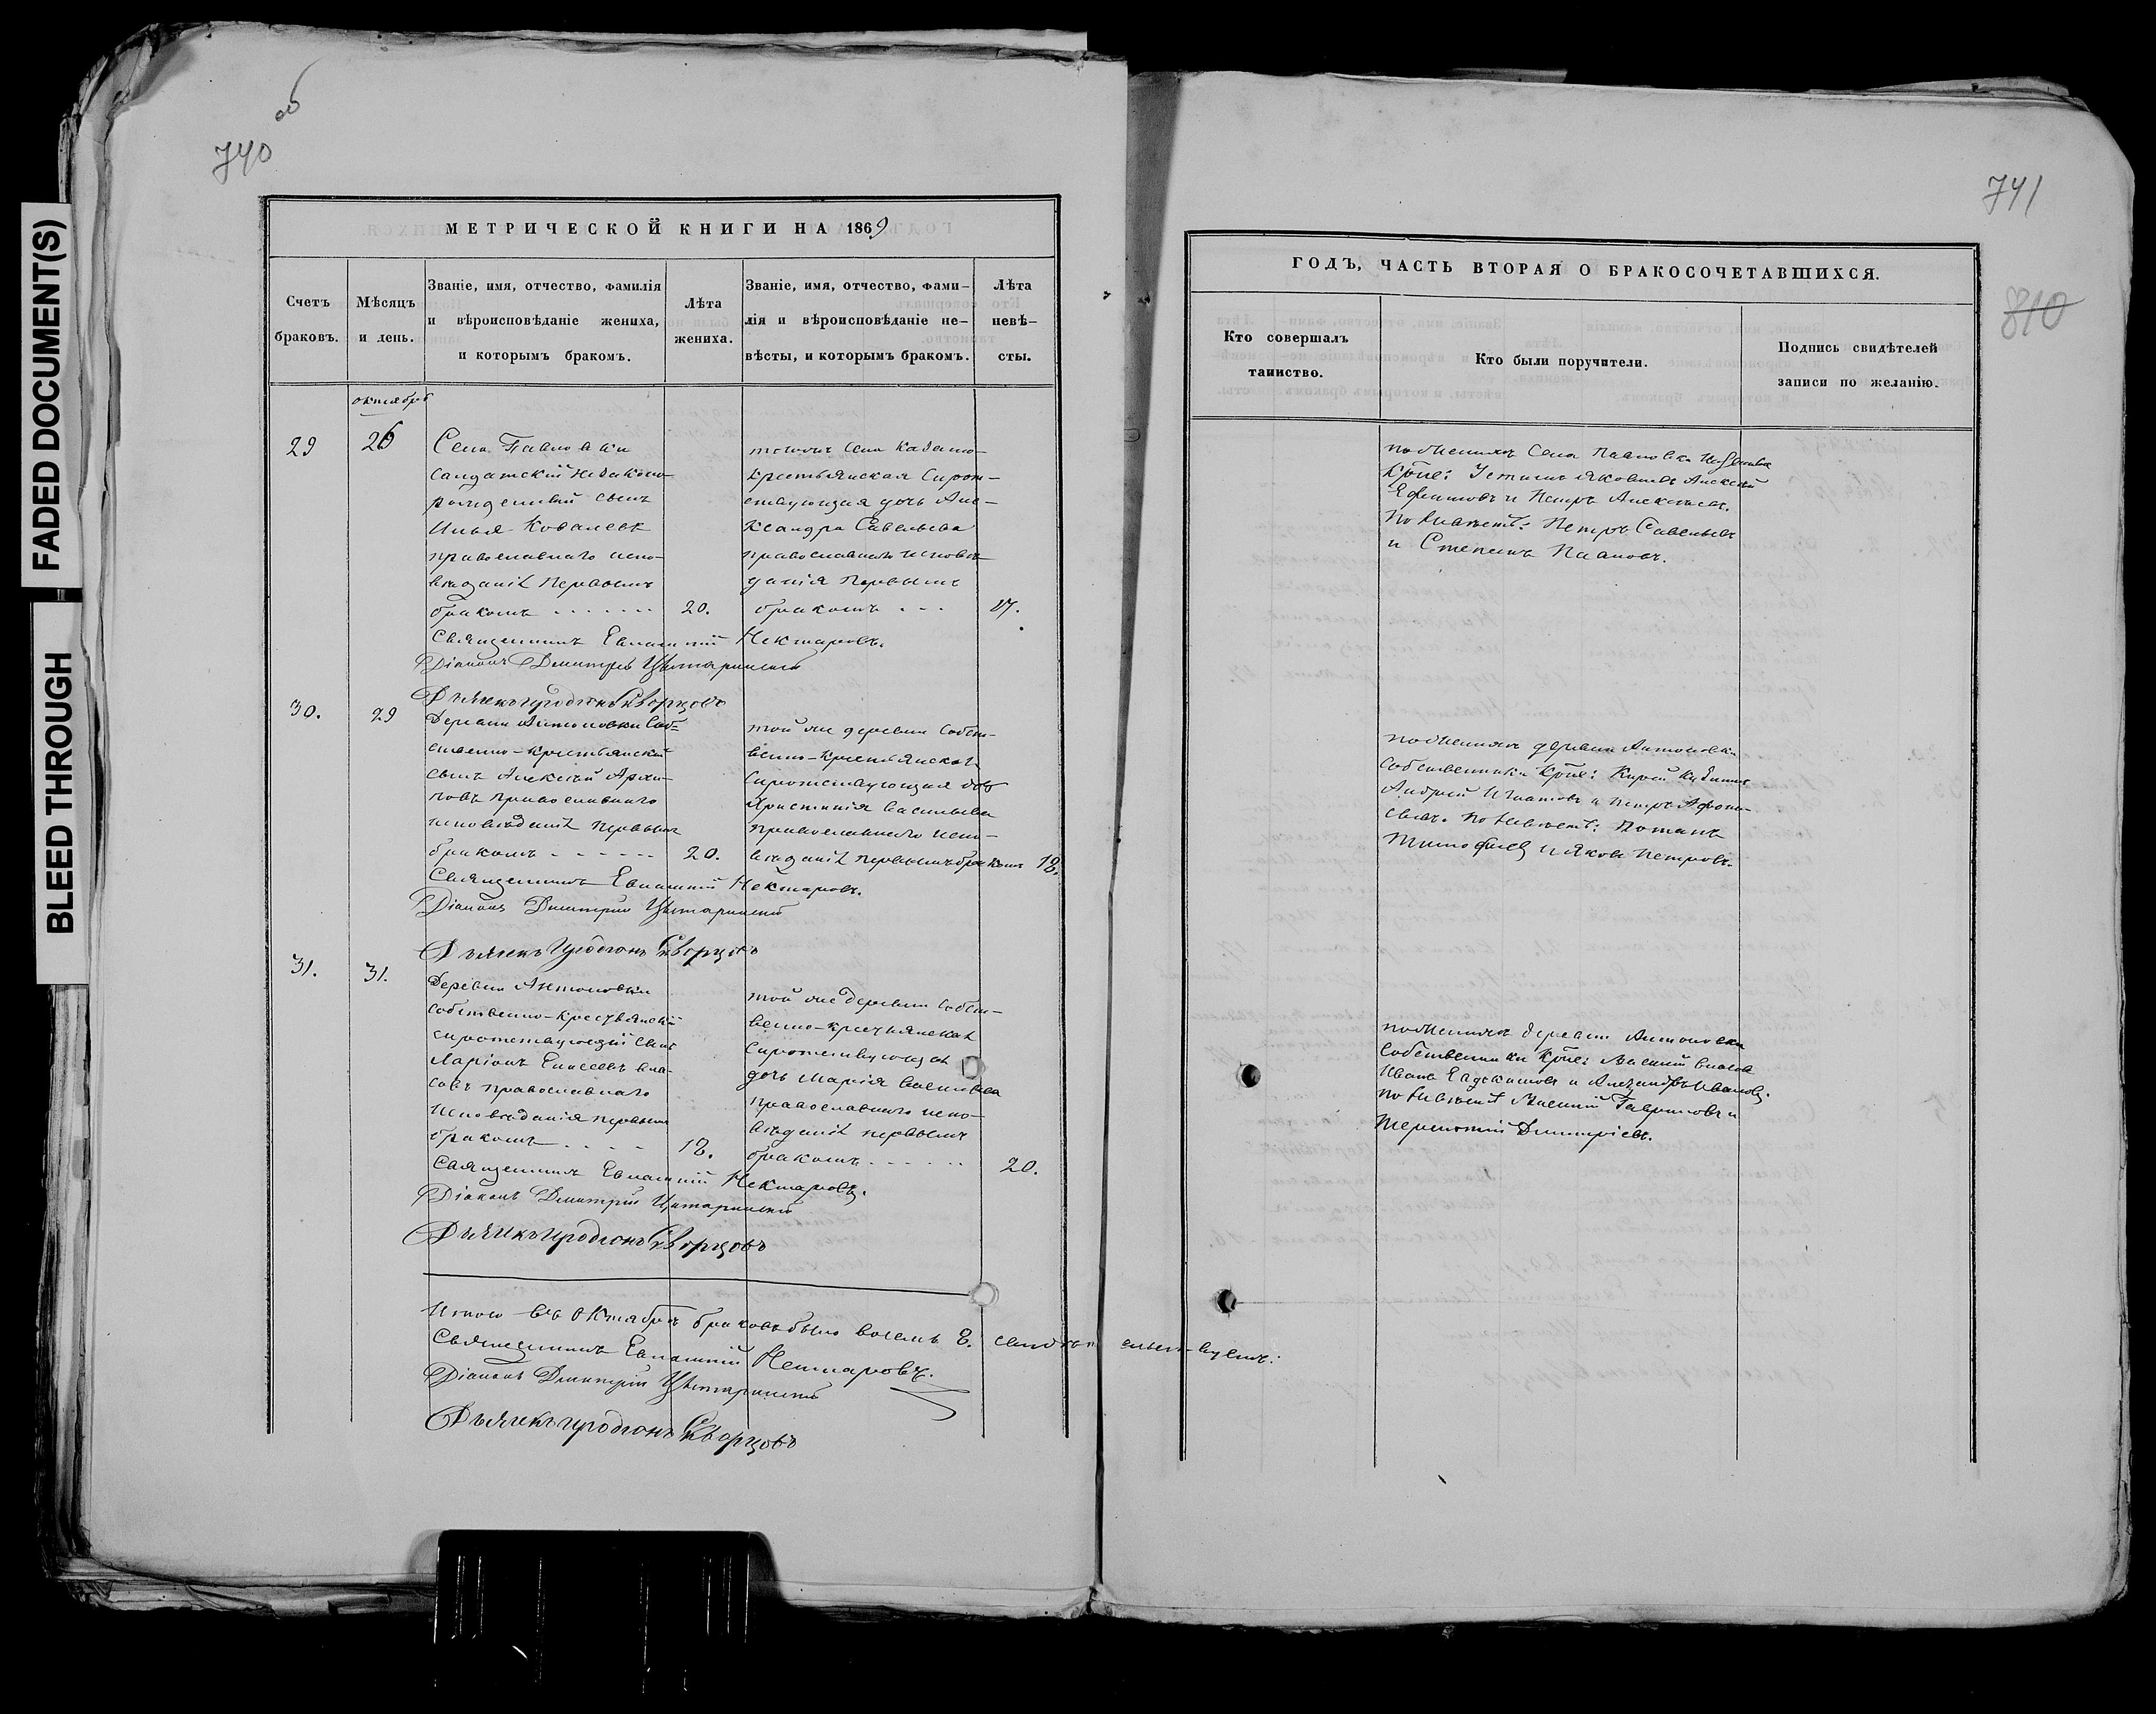 FADED DOCUMENT(S)
BLEED THROUGH
740
об
МЕТРИЧЕСКОЙ КНИГИ НА 1869
Счетъ браковъ.
Мѣсяцъ и день.
Званіе, имя, отчество, фамилія и вѣроисповѣданіе жениха, и которымъ бракомъ.
Лѣта жениха.
Званіе, имя, отчество, фамилія и вѣроисповѣданіе невѣсты, и которымъ бракомъ.
Лѣта невѣсты.
октября
29
26
Села Павловки
Салдатскій незаконо-
рожденный сынъ
Илья Ковалевъ
православнаго испо-
вѣданія первымъ
бракомъ
20.
тогожъ села
крестьянская сирот-
ствующая дочь Але-
ксандра Савельева
православнаго исповѣ-
данія первымъ
бракомъ
17.
Священникъ Евлампій Нектаровъ.
Діаконъ Дмитрій
Дьячекъ Иродіонъ Скворцовъ
30.
29
Деревни Антоновки Соб-
ственно-крестьянскій
сынъ Алексѣй Архи-
повъ православнаго
исповѣданія первымъ
бракомъ
20.
той же деревни собст-
венно-крестьянская
сиротствующая дочь
Христинія Васильева
православнаго испо-
вѣданія первымъ бракомъ
18.
Священникъ Евлампій Нектаровъ.
Діаконъ Дмитрій
Дьячекъ Иродіонъ Скворцовъ
31.
31.
Деревни Антоновки
собственно-крестьянскій
сиротствующій сынъ
Ларіонъ Елисеевъ Вла-
совъ православнаго
исповѣданія первымъ
бракомъ
18.
той же деревни собст-
венно-крестьянская
сиротствующая
дочь Марія Васильева
православнаго испо-
вѣданія первымъ
бракомъ
20.
Священникъ Евлампій Нектаровъ.
Діаконъ Дмитрій
Дьячекъ Иродіонъ Скворцовъ
Итого въ Октябрѣ браковъ было восемь 8.
Священникъ Евлампій Нектаровъ.
Діаконъ Дмитрій
Дьячекъ Иродіонъ Скворцовъ
741
810
ГОДЪ, ЧАСТЬ ВТОРАЯ О БРАКОСОЧЕТАВШИХСЯ.
Кто совершалъ таинство.
Кто были поручители.
Подпись свидѣтелей записи по желанію.
по женихѣ Села Павловки
Устинъ Яковлевъ Алексѣй
Ефимовъ и Петръ Алексѣевъ.
по невѣстѣ: Петръ Савельевъ
и Степанъ Павловъ.
по женихѣ деревни Антоновки
собственники
Андрей Игнатовъ и Петръ Афона-
сьевъ. по невѣстѣ: Потапъ
Тимофеевъ и Яковъ Петровъ.
по женихѣ деревни Антоновки
собственники Василий Власовъ
Иванъ Евдокимовъ и Александръ Ивановъ.
по невѣстѣ Василий Гавриловъ и
Терентій Димитріевъ.